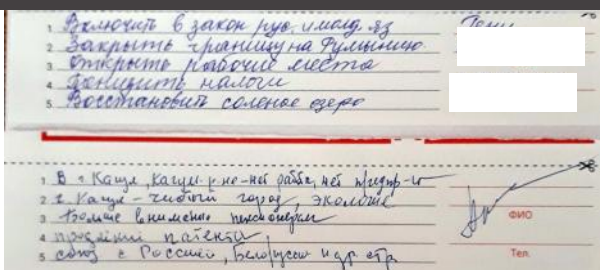 1 Включить в закон рус. и молд. яз
2 Закрыть границу на Румынию
3 Открыть рабочие места
4 Понизить налоги
5 Восстановить соленое озеро
1 В г Кагул, Кагул. р-не - нет работы, нет предпр-й
2 г. Кагул - чистый город, экология
3 Больше внимания пенсионерам
4 патенты
5 союз с Россией, Белорусси и др стр
ФИО
Тел